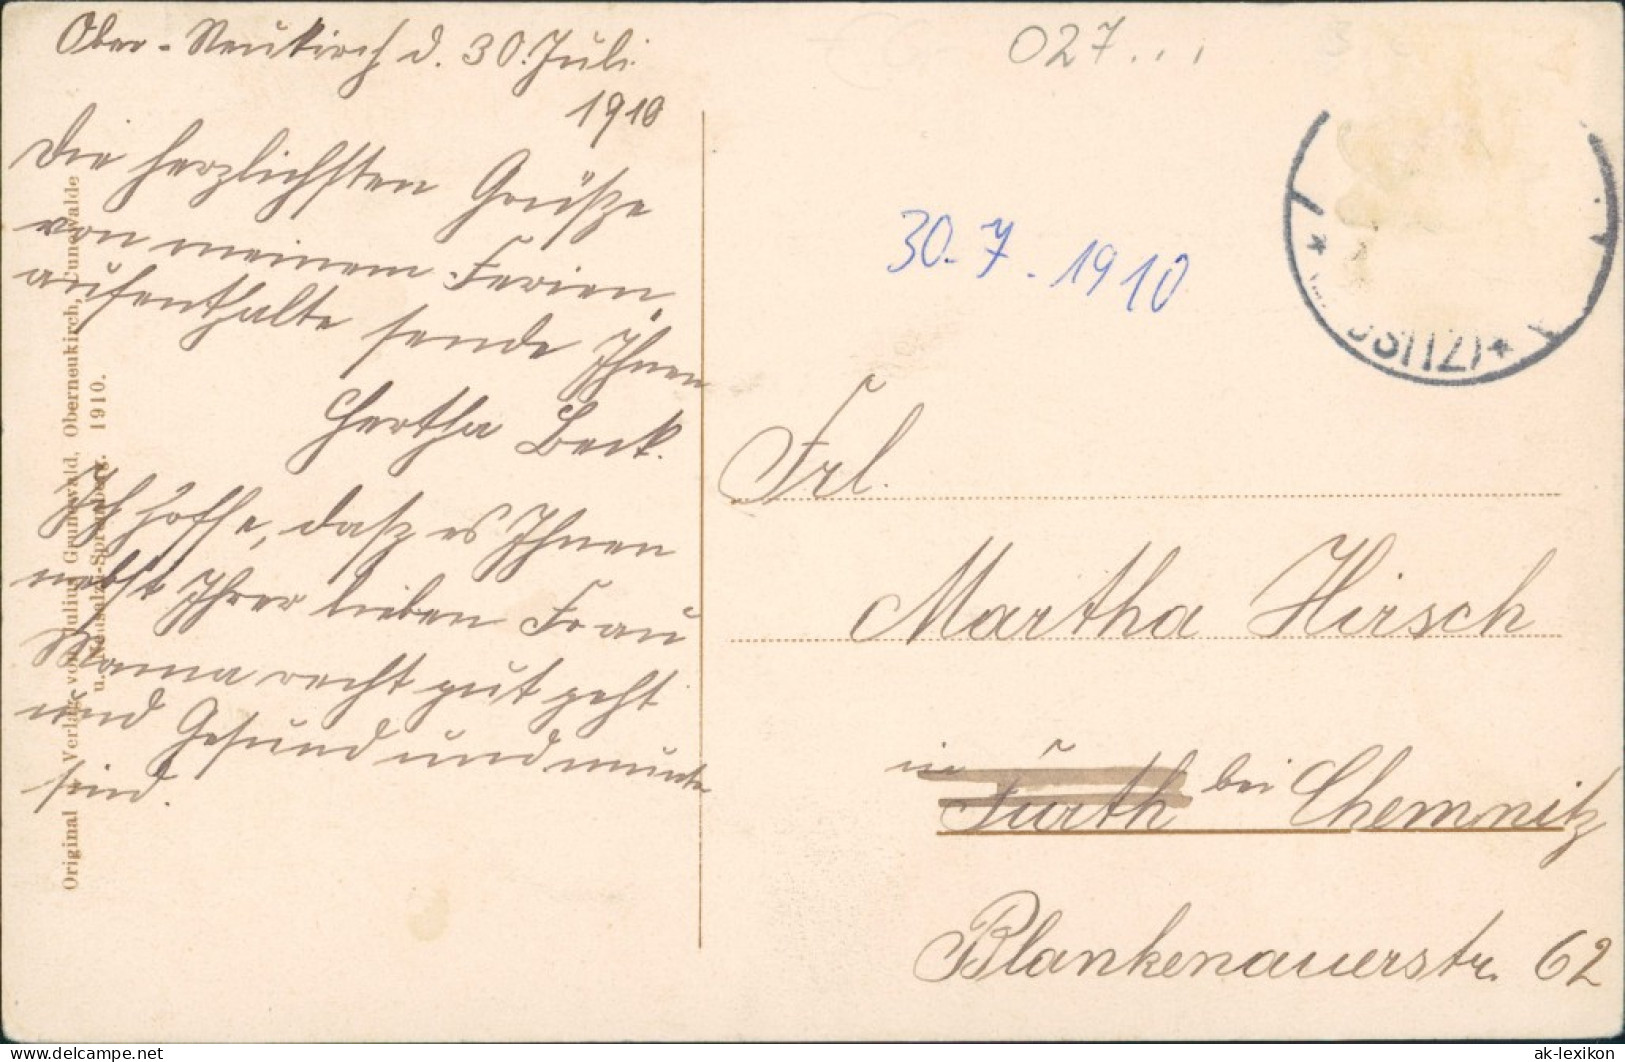 Ober-Neukirch d. 30. Juli
1910
Die herzlichsten Grüße
von meinem Ferien,
aufenthalte sende Ihnen
Hertha Beck.
Ich hoffe, daß es Ihnen
nebst Ihrer lieben Frau
Mama recht gut geht
und Gesund und munter
sind.
Original u. Verlag von Julius Grunewald, Oberneukirch, Cunewalde
u. Neusalza-Spremberg. 1910.
027...
30.7.1910
Frl.
Martha Hirsch
in Furth bei Chemnitz
Blankenauerstr. 62
ak-ansichtskarten.de
ak-lexikon